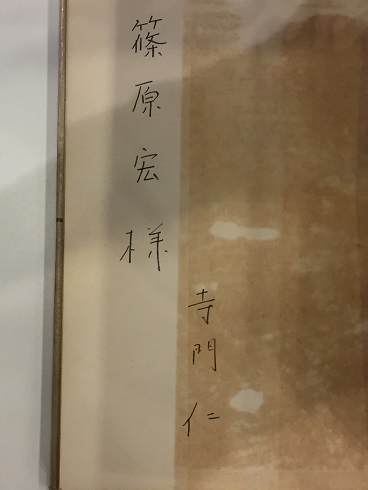 篠原宏様
寺門仁